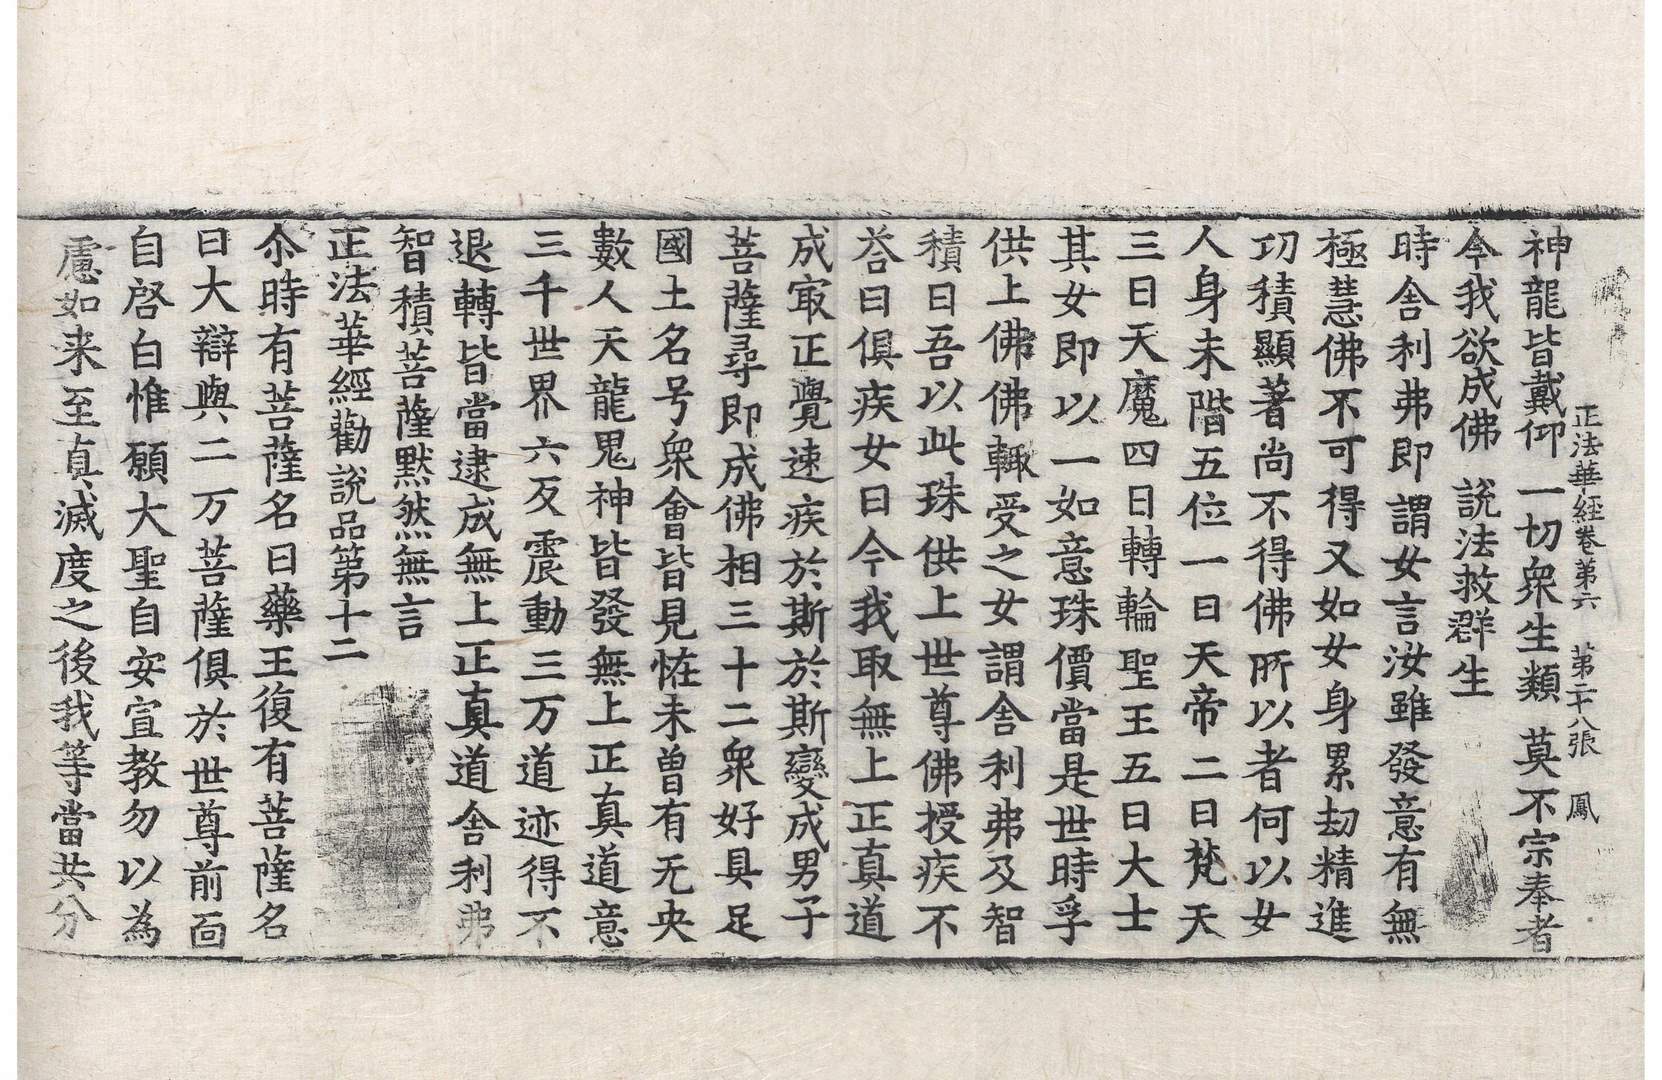 正法華經卷第六　第二十八張　鳳
神龍皆戴仰　一切衆生類　莫不宗奉者
今我欲成佛　說法救群生
時舎利弗即謂女言汝雖發意有無
極慧佛不可得又如女身累劫精進
㓛積顯著尚不得佛所以者何以女
人身未階五位一曰天帝二曰梵天
三曰天魔四曰轉輪聖王五曰大士
其女即以一如意珠價當是世時孚
供上佛佛輙受之女謂舎利弗及智
積曰吾以此珠供上世尊佛授疾不
荅曰俱疾女曰今我取無上正真道
成㝡正覺速疾於斯於斯變成男子
菩薩尋即成佛相三十二衆好具足
國土名号衆會皆見恠未曾有无央
數人天龍鬼神皆發無上正真道意
三千世界六反震動三万道迹得不
退轉皆當逮成無上正真道舎利弗
智積菩薩默然無言
正法華經勸說品第十二
尒時有菩薩名曰藥王復有菩薩名
曰大辯與二万菩薩俱於世尊前面
自啓白惟願大聖自安宣教勿以為
慮如来至真滅度之後我等當共分